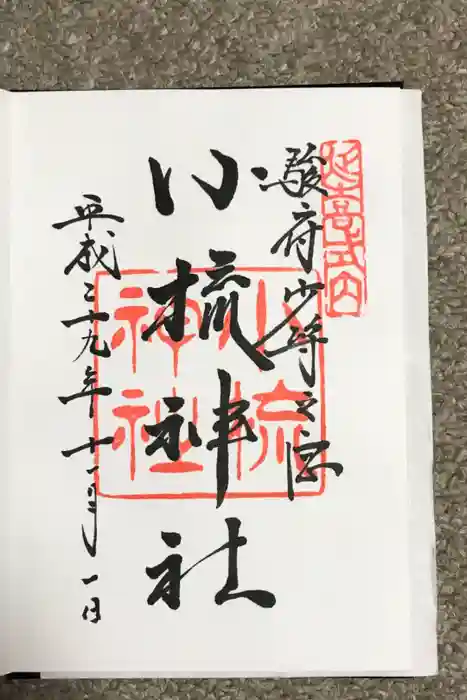 延喜式内
駿府少将之宮
小梳神社
小梳神社
平成二十九年十一月一日